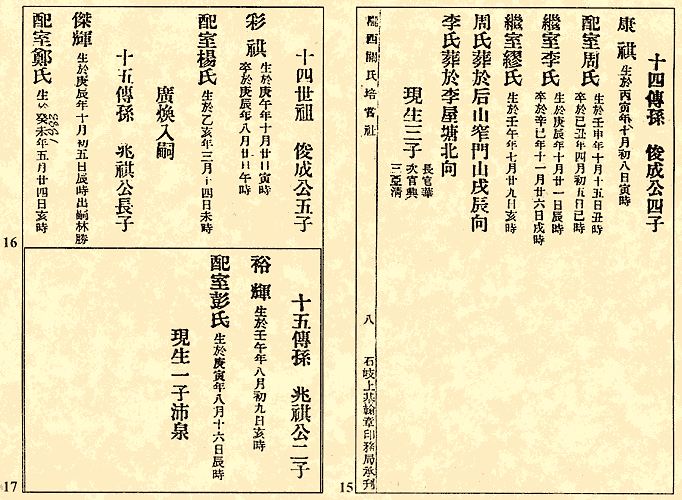 十四傳孫 俊成公四子
康祺 生於丙寅年十月初八日寅時
配室周氏 生於壬申年十月十五日丑時 卒於己丑年四月初五日巳時
繼室李氏 生於庚辰年十月廿一日辰時 卒於辛巳年十一月廿六日戌時
繼室繆氏 生於壬午年七月廿九日亥時
周氏葬於后山窂門山戌辰向
李氏葬於李屋塘北向
現生三子 長官華 次官典 三亞清
關氏培
八
石岐上基翰章印務局承刊
15
十四世祖 俊成公五子
彩祺 生於庚午年十月廿日寅時 卒於庚辰年八月廿日午時
配室楊氏 生於乙亥年三月十四日未時
廣煥入嗣
十五傳孫 兆祺公長子
傑輝 生於庚辰年十月初五日辰時出嗣林勝
配室鄭氏 生於癸未年五月廿四日亥時
16
十五傳孫 兆祺公二子
裕輝 生於壬午年八月初九日亥時
配室彭氏 生於庚寅年八月十六日辰時
現生一子沛泉
17